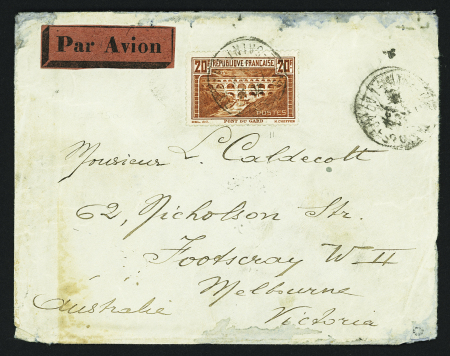 Par Avion
20F RÉPUBLIQUE FRANÇAISE 20F
POSTES
PONT DU GARD
Monsieur L. Caldecott
62, Nicholson Str.
Footscray W II
Melburne
Australie Victoria